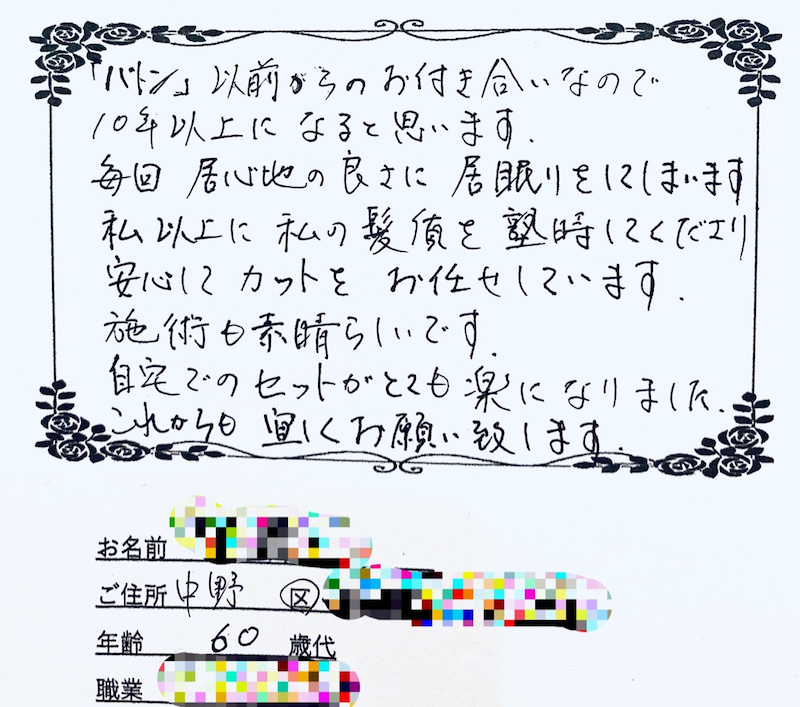 「バトン」以前からのお付き合いなので
10年以上になると思います.
毎回 居心地の良さに 居眠りをしてしまいます
私以上に 私の髪質を 塾時してくださり
安心して カットを お任せしています.
施術も素晴らしいです.
自宅でのセットがとても楽になりました.
これからも 宜しくお願い致します.
お名前
ご住所 中野 区
年齢 60 歳代
職業